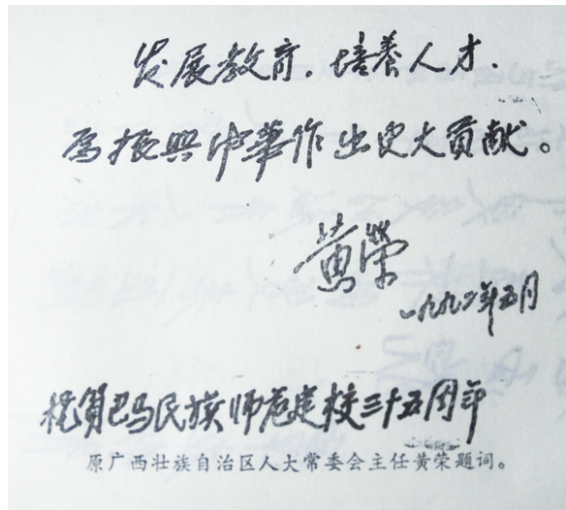 发展教育.培养人才.
为振興中華作出更大贡献。
黄荣
一九九二年五月
祝贺巴马民族师范建校三十五周年
原广西壮族自治区人大常委会主任黄荣题词。